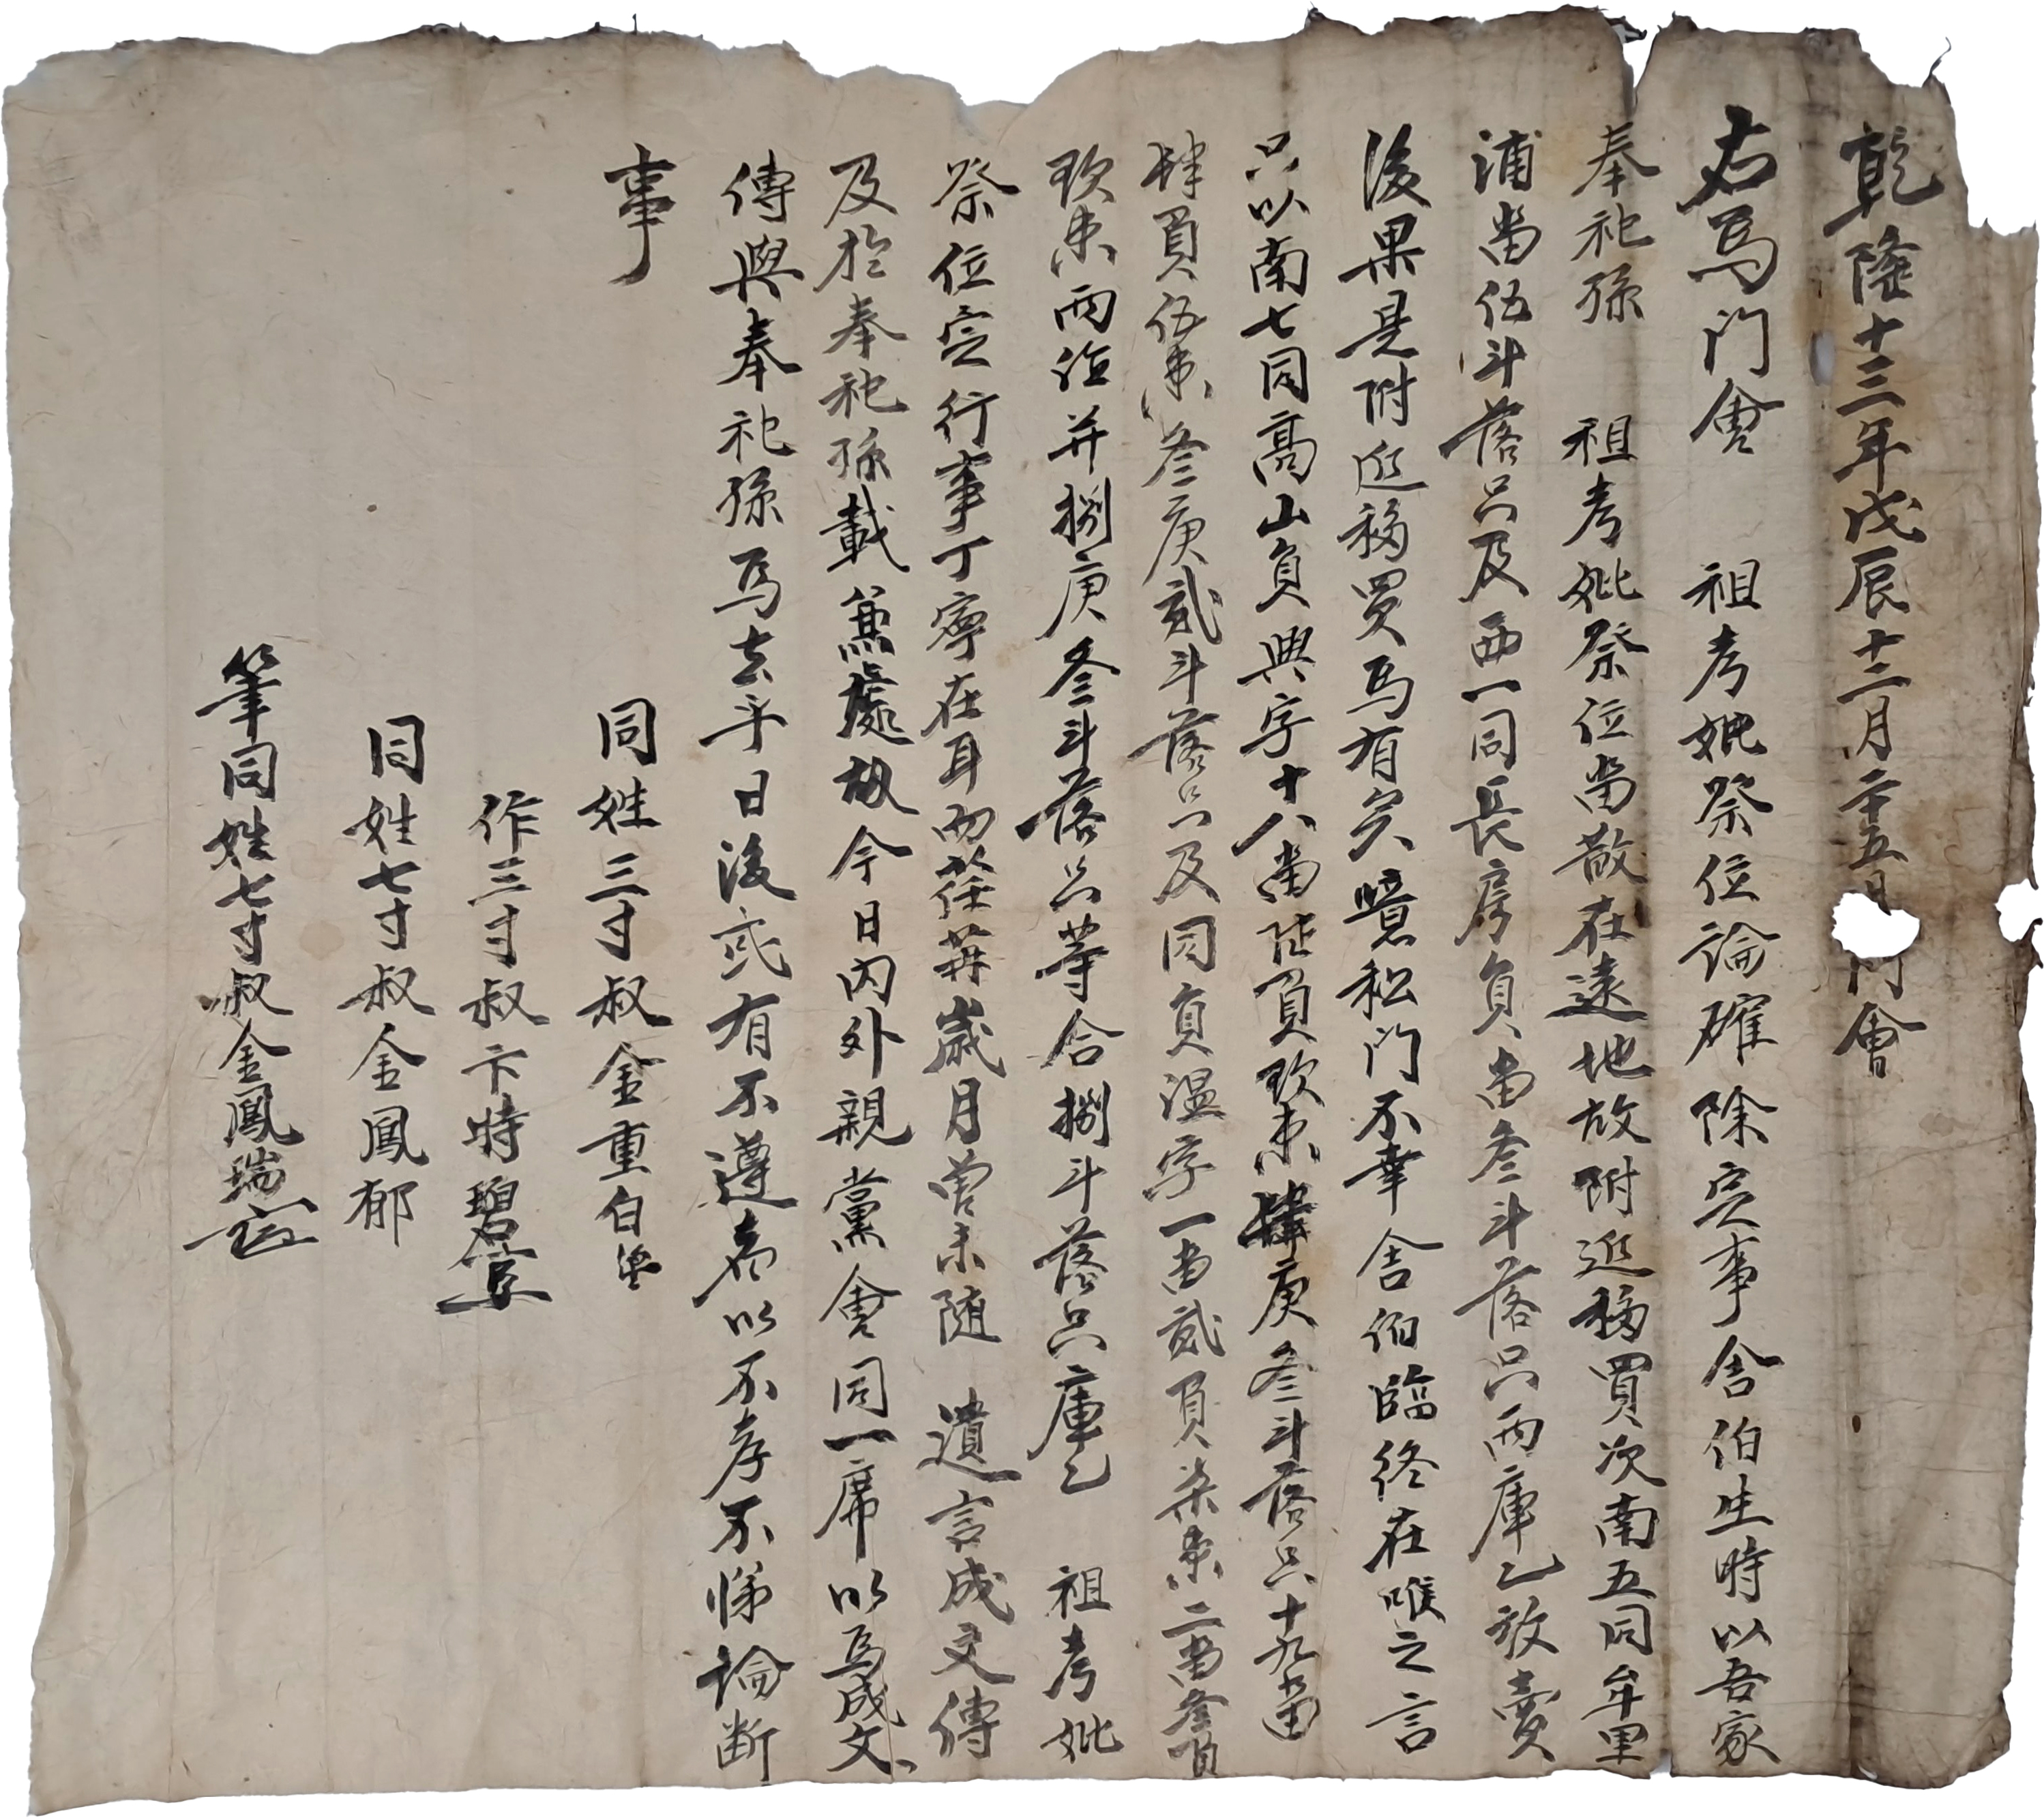 乾隆十三年戊辰十二月二十五日 門會
右爲門會 祖考妣祭位論確除定事舍伯生時以吾家
奉祀孫 祖考妣祭位畓散在遠地故附近移買次南五同牟里
浦畓伍斗落只及西一同長房員畓叄斗落只兩庫乙放賣
後果是附近移買爲有矣噫私門不幸舍伯臨終在喉之言
只以南七同高山員興字十八畓陸負玖束肆庚叄斗落只十九畓
肆負伍束叄庚貳斗落只及同員温字一畓貳負柒束二畓叄負
玖束兩徝并捌庚叄斗落只等合捌斗落只庫乙 祖考妣
祭位定行事丁寧在耳而荏苒歲月曾未随 遺言成文傳
及於奉祀孫載兼處故今日內外親黨會同一席以爲成文
傳與奉祀孫爲去乎日後或有不遵者以不孝不悌論斷
事
同姓三寸叔金重白
作三寸叔卞時碧
同姓七寸叔金鳳郁
筆同姓七寸叔金鳳瑞